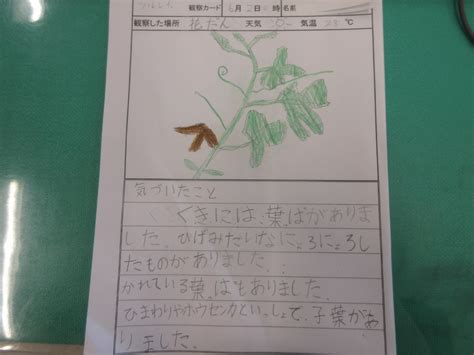 観察カード 6月2日 時 名前
観察した場所 花だん 天気 気温 ℃
気づいたこと
くきには、葉ぱがありま
した。ひげみたいなにょろにょろし
たものがありました。
かれている葉っぱもありました。
ひまわりやホウセンカといっしょで、子葉があ
りました。